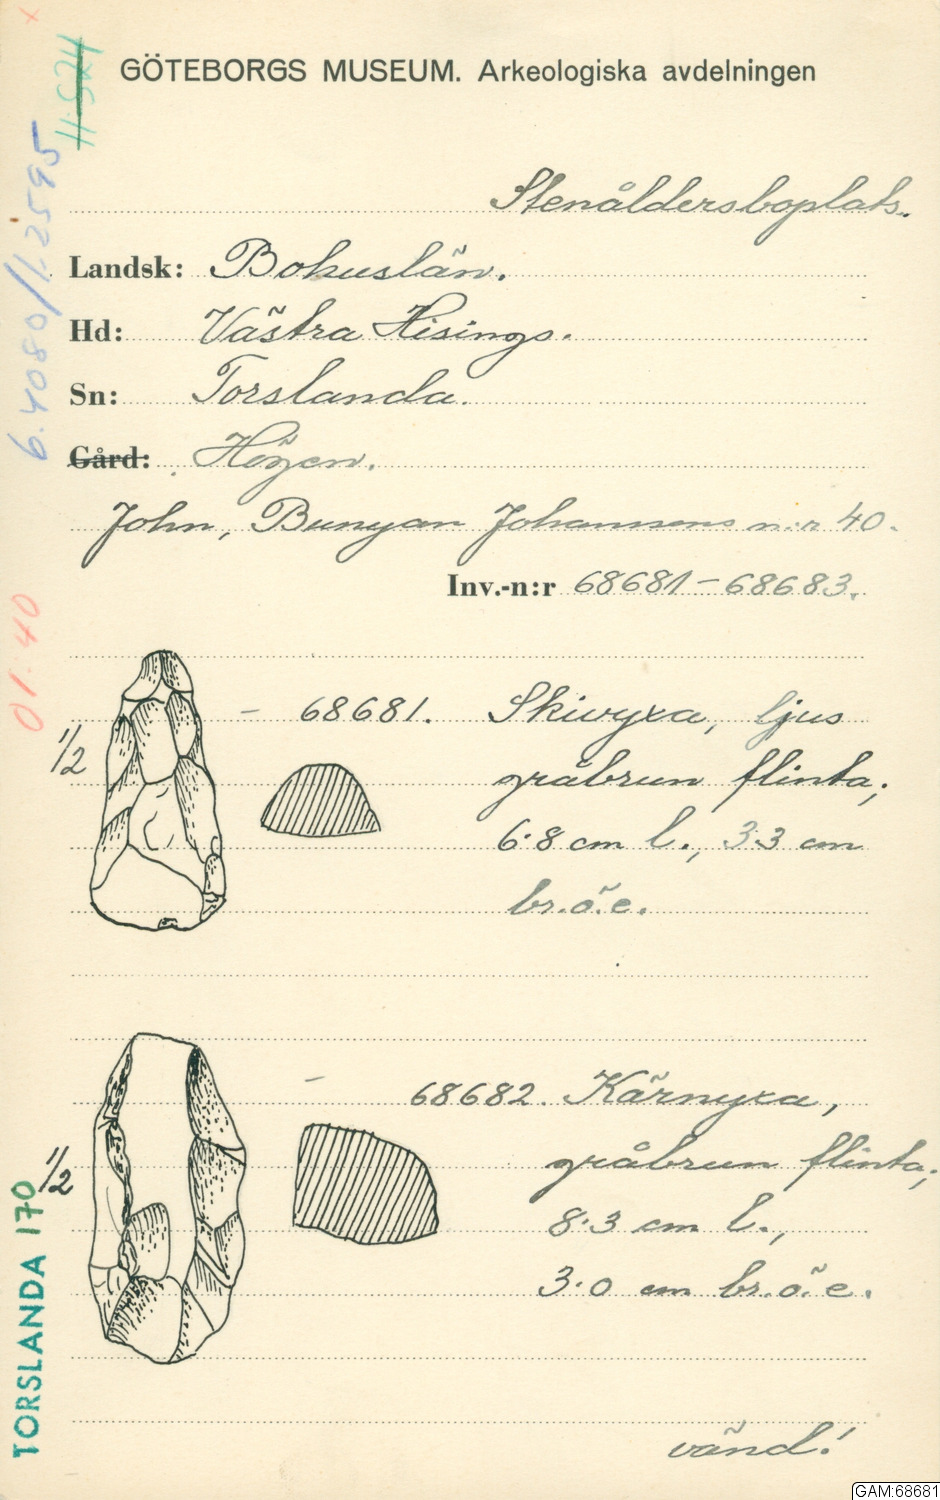 x
11:524
GÖTEBORGS MUSEUM. Arkeologiska avdelningen
6.4080/1.2595
Stenåldersboplats.
Landsk: Bohuslän.
Hd: Västra Hisings.
Sn: Torslanda.
Gård: Högen.
John, Bunyan Johanssons n:r 40.
Inv.-n:r 68681-68683.
01:40
1/2
- 68681. Skivyxa, ljus
gråbrun flinta;
6.8 cm l., 3.3 cm
br.ö.e.
1/2
- 68682. Kärnyxa,
gråbrun flinta;
8.3 cm l.,
3.0 cm br.ö.e.
TORSLANDA 170
vänd!
GAM:68681